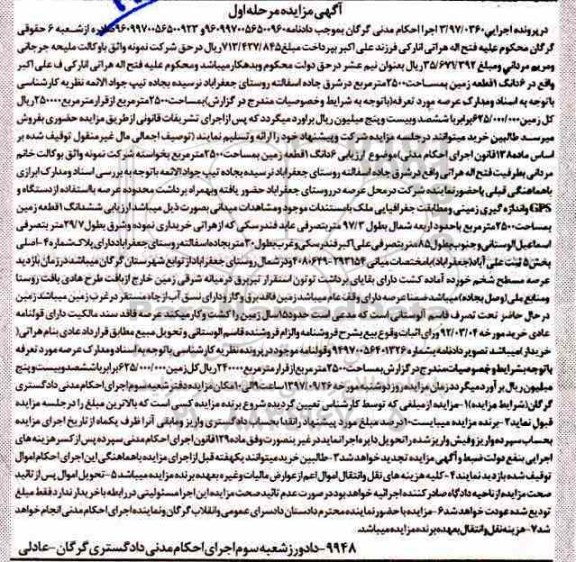 آگهی مزایده مرحله اول
در پرونده اجرایی ۳/۹۷/۰۳۶۰ اجرا احکام مدنی گرگان بموجب دادنامه ۹۶۰۹۹۷۰۰۵۶۵۰۰۰۹۶ و ۹۶۰۹۹۷۰۰۵۶۵۰۰۹۲۳ صادره از شعبه ۶ حقوقی
گرگان محکوم علیه فتح اله هراتی انارکی فرزند علی اکبر بپرداخت مبلغ ۷۱۳/۴۲۷/۸۴۵ ریال در حق شرکت نمونه واثق باوکالت ملیحه جرجانی
و مریم مردانی و مبلغ ۳۵/۶۷۱/۳۹۲ ریال بعنوان نیم عشر در حق دولت محکوم وبدهکار میباشد و محکوم علیه فتح اله هراتی انارکی ف علی اکبر
واقع در ۶ دانگ ۱ قطعه زمین بمساحت ۲۵۰۰ مترمربع در شرق جاده اسفالته روستای جعفرآباد نرسیده بجاده تیپ جوادالائمه نظریه کارشناسی
باتوجه به اسناد و مدارک عرصه مورد تعرفه (باتوجه به شرایط وخصوصیات مندرج در گزارش) بمساحت ۲۵۰۰ مترمربع از قرار مترمربع ۲۵۰۰۰۰ ریال
کل زمین ۶۲۵/۰۰۰/۰۰۰ برابر با ششصد وبیست و پنج میلیون ریال برآورد میگردد که پس از اجرای تشریفات قانونی از طریق مزایده حضوری بفروش
میرسد طالبین خرید میتوانند در جلسه مزایده شرکت وپیشنهاد خود را ارائه و تسلیم نمایند (توصیف اجمالی مال غیر منقول توقیف شده بر
اساس ماده ۱۳۸ قانون اجرای احکام مدنی) موضوع ارزیابی ۶ دانگ ۱ قطعه زمین بمساحت ۲۵۰۰ مترمربع بخواسته شرکت نمونه واثق بوکالت خانم
مردانی بطرفیت فتح اله هراتی واقع در شرق جاده اسفالته روستای جعفرآباد نرسیده بجاده تیپ جوادالائمه باتوجه به بررسی اسناد ومدارک ابرازی
باهماهنگی قبلی باحضور نماینده شرکت در محل عرصه در روستای جعفرآباد حضور یافته و بهمراه برداشت محدوده عرصه بااستفاده از دستگاه و
GPS واندازه گیری زمینی ومطابقت جغرافیایی ملک بامستندات موجود ومشاهدات میدانی بصورت ذیل میباشد ارزیابی ششدانگ ۱ قطعه زمین
بمساحت ۲۵۰۰ مترمربع باحدود اربعه شمال بطول ۹۷/۳ متر بتصرفی عابد فندرسکی که از هراتی خریداری نموده وشرق بطول ۲۹/۷ متر بتصرفی
اسماعیل الوستانی وجنوب بطول ۸۵ متر بتصرفی علی اکبر فندرسکی و غرب بطول ۳۰ متر بجاده اسفالته روستای جعفرآباد دارای پلاک شماره ۴-اصلی
بخش ۵ ثبت علی آباد (جعفرآباد) بامختصات میانی ۲۹۳۱۵۴-۴۰۸۰۶۲۹ و در شمال روستای جعفرآباد از توابع شهرستان گرگان میباشد در زمان بازدید
عرصه مسطح شخم خورده آماده کشت دارای بقایای برداشت توتون استقرار تیربرق در میانه شرقی زمین خارج از بافت طرح هادی بافت روستا
ومنابع ملی (وصل بجاده) میباشد ضمنا عرصه دارای وقف عام میباشد زمین فاقد برق وگاز ودارای نسق آب از چاه مستقر در غرب زمین میباشد زمین
در حال حاضر تحت تصرف قاسم الوستانی است که مدعی است حدود ۱۵ سال زمین را کشت وکار میکند عرصه فاقد سند مالکیت دارای قولنامه
عادی خرید مورخه ۹۲/۰۳/۰۴ ورای اثبات وقوع بیع بشرح فروشنده والزام فروشنده قاسم الوستانی و تحویل مبیع مطابق قرارداد عادی بنام هراتی (
خریدار) میباشد تصویر دادنامه بشماره ۹۴۹۷۰۰۵۶۴۰۱۳۲۶ وقولنامه موجود در پرونده نظریه کارشناسی باتوجه به اسناد ومدارک عرصه مورد تعرفه
باتوجه بشرایط وخصوصیات مندرج در گزارش بمساحت ۲۵۰۰ مترمربع از قرار مترمربع ۲۴۰۰۰۰ ریال کل زمین ۶۲۵/۰۰۰/۰۰۰ برابر با ششصد وبیست وپنج
میلیون ریال برآورد میگردد زمان مزایده روز دوشنبه مورخه ۱۳۹۷/۰۹/۲۶ ساعت ۹ الی ۱۰ مکان مزایده دفتر شعبه سوم اجرای احکام مدنی دادگستری
گرگان (شرایط مزایده) ۱-مزایده از مبلغی که توسط کارشناسی تعیین گردیده شروع برنده مزایده کسی است که بالاترین مبلغ را در جلسه مزایده
قبول نماید ۲-برنده مزایده میبایست ۱۰ درصد مبلغ مورد پیشنهاد را نقدا بحساب سپرده دادگستری واریز ومابقی آنرا ظرف یکماه از تاریخ اجرای مزایده
بحساب سپرده واریز وفیش واریز شده را تحویل دایره اجرا نماید در غیر ینصورت وفق ماده ۱۲۹ قانون اجرای احکام مدنی سپرده پس از کسر هزینه های
اجرایی بنفع دولت ضبط و آگهی مزایده تجدید خواهد شد ۳-طالبین خرید میتوانند یکهفته قبل از اجرای مزایده باهماهنگی این اجرای احکام اموال
توقیف شده بازدید نمایند ۴-کلیه هزینه های نقل وانتقال اموال اعم از عوارض مالیات وغیره بعهده برنده مزایده میباشد ۵-تحویل اموال پس از تائید
صحت مزایده از ناحیه دادگاه صادر کننده اجرائیه خواهد بود در صورت عدم تائید صحت مزایده این اجرا مسئولیتی در رابطه با خریدار ندارد فقط مبلغ
تودیع شده عودت خواهد شد ۶-مزایده با حضور نماینده محترم دادستان دادسرای عمومی وانقلاب گرگان ونماینده اجرای احکام مدنی انجام خواهد
شد ۷-هزینه نقل وانتقال بعهده برنده مزایده میباشد.
۹۹۴۸-دادورز شعبه سوم اجرای احکام مدنی دادگستری گرگان-عادلی